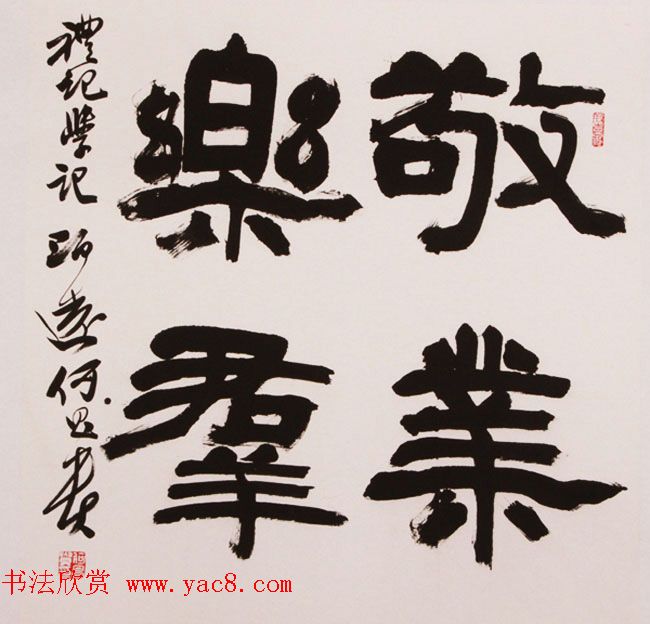 敬業
樂羣
禮記學記
何
书法欣赏 www.yac8.com